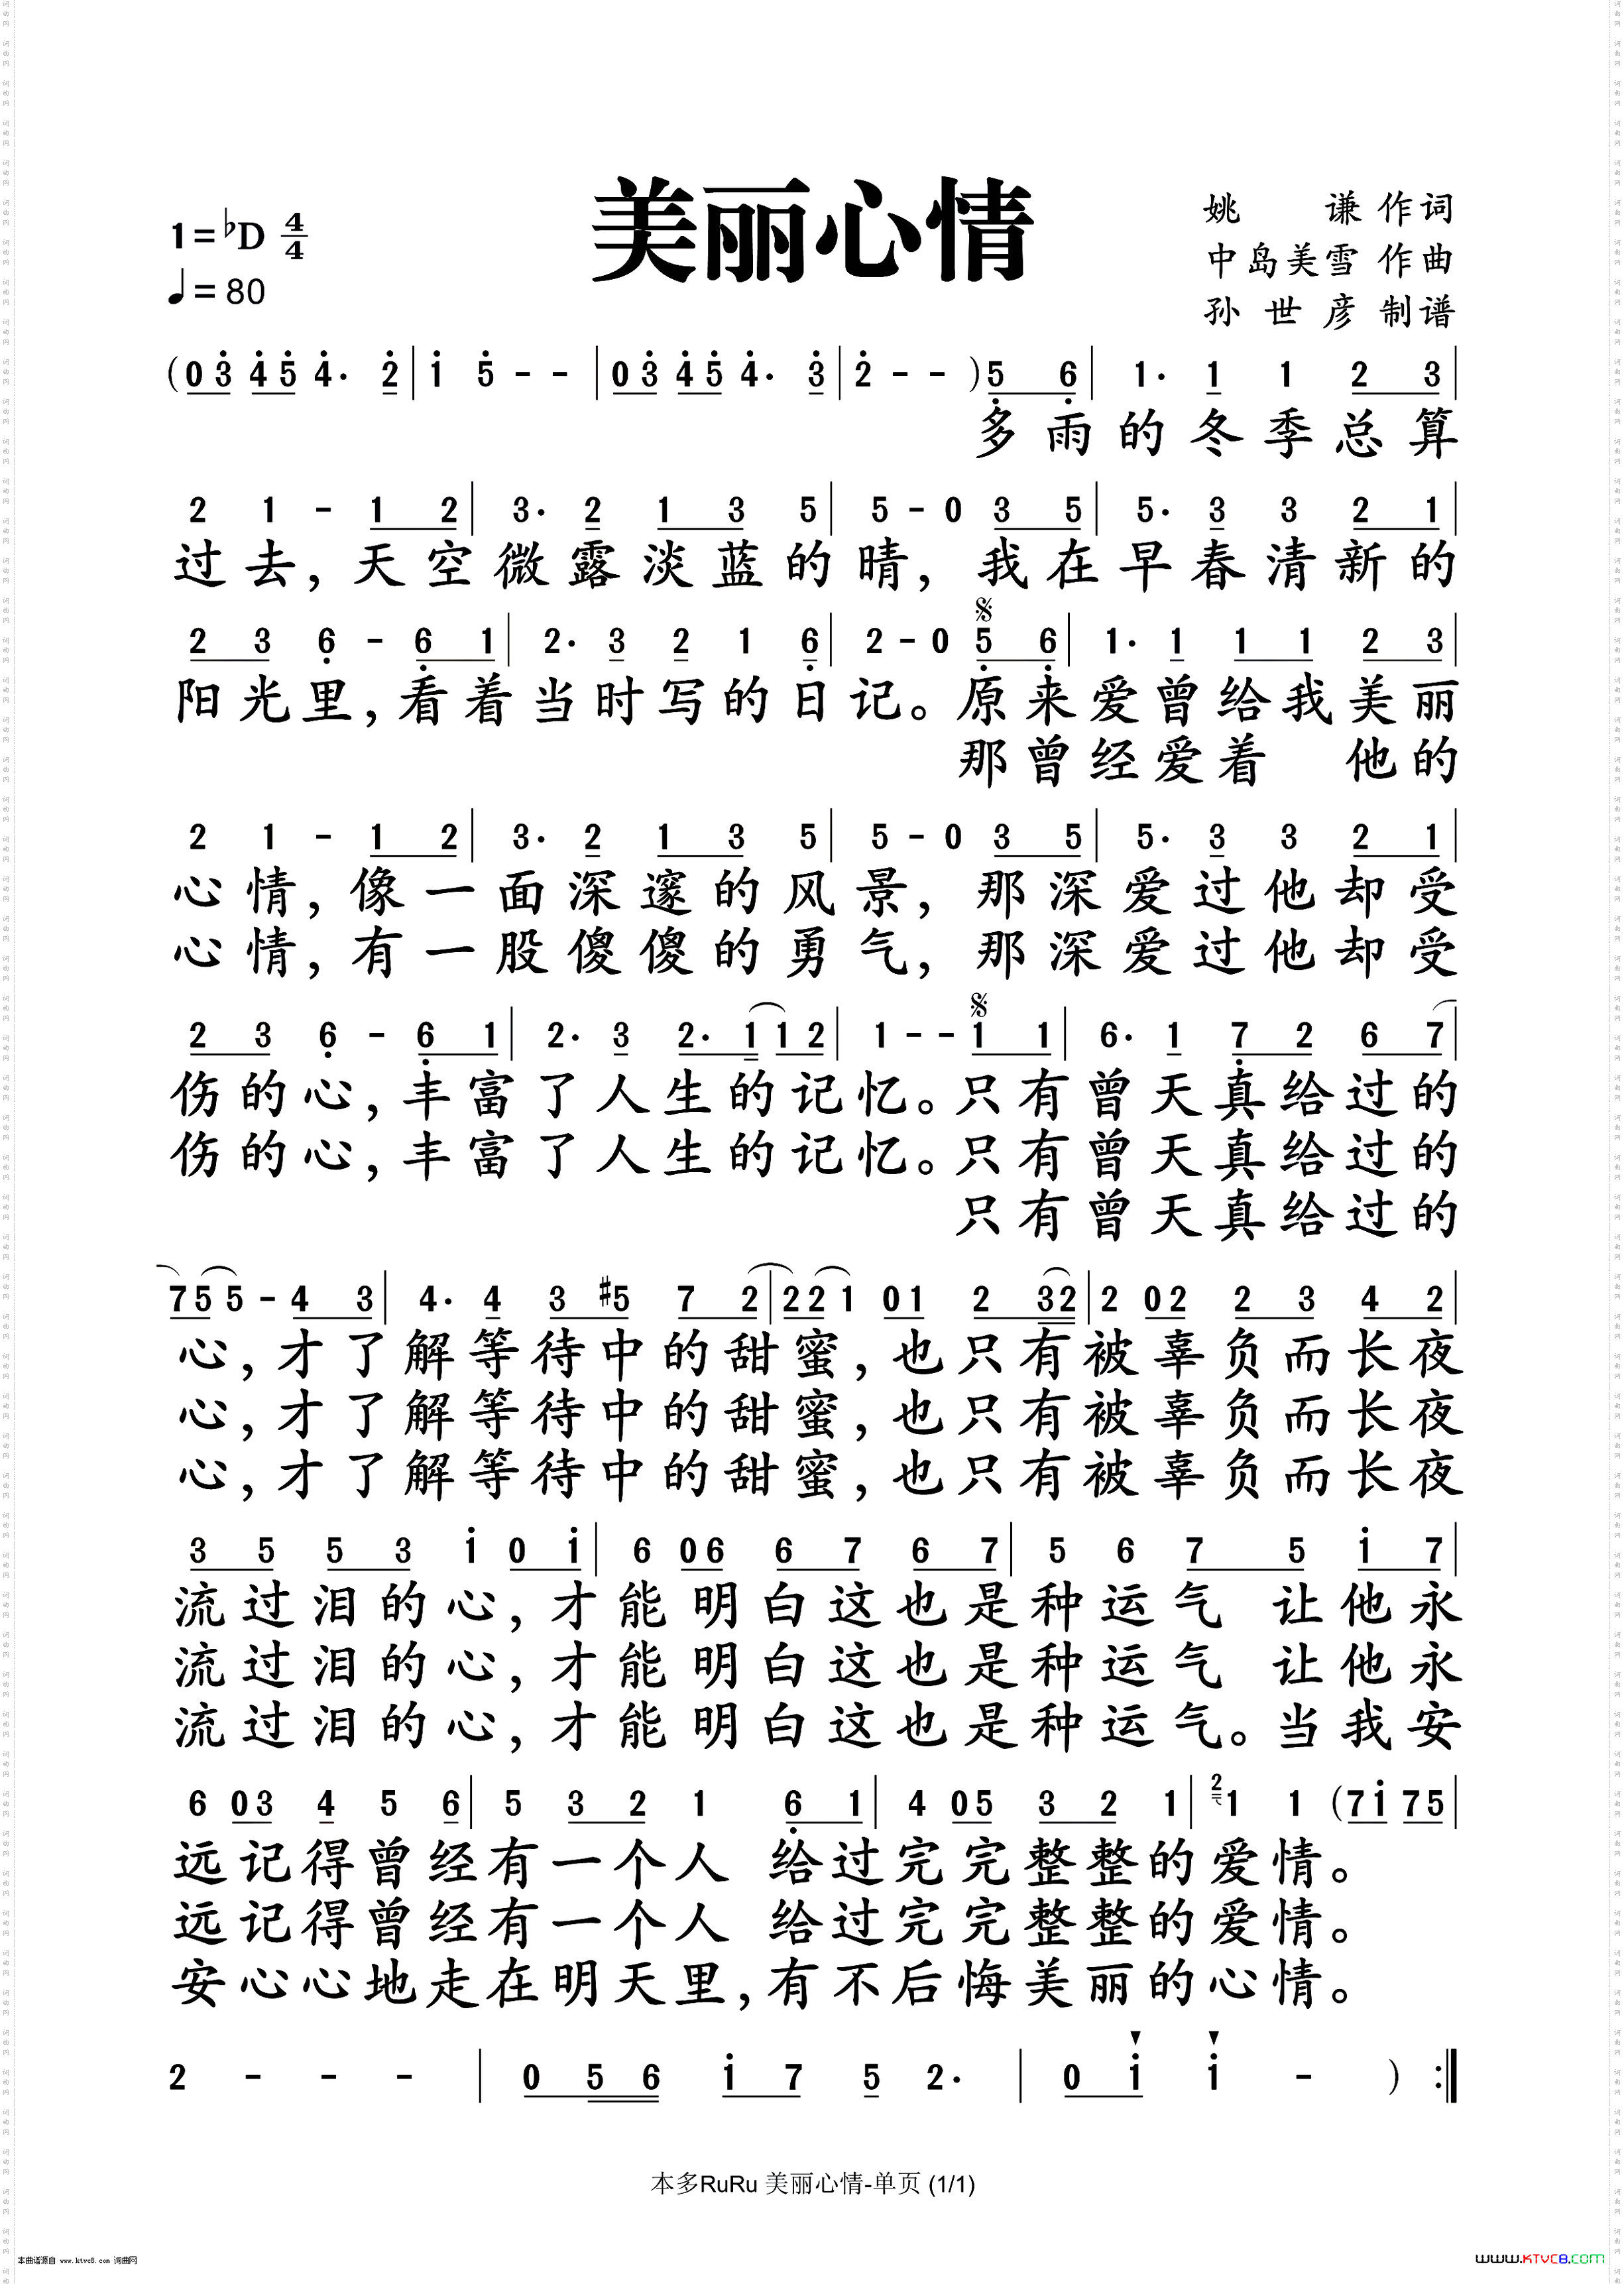 美丽心情
1=♭D 4/4
♩=80
姚 谦 作词
中岛美雪 作曲
孙世彦 制谱
(0 3 4 5 4· 2 | 1 5 - - | 0 3 4 5 4· 3 | 2 - - ) 5 6 | 1· 1 1 2 3 |
多雨的冬季总算
2 1 - 1 2 | 3· 2 1 3 5 | 5 - 0 3 5 | 5· 3 3 2 1 |
过去，天空微露淡蓝的晴，我在早春清新的
2 3 6 - 6 1 | 2· 3 2 1 6 | 2 - 0 5 6 | 1· 1 1 1 2 3 |
阳光里，看着当时写的日记。原来爱曾给我美丽
那曾经爱着 他的
2 1 - 1 2 | 3· 2 1 3 5 | 5 - 0 3 5 | 5· 3 3 2 1 |
心情，像一面深邃的风景，那深爱过他却受
心情，有一股傻傻的勇气，那深爱过他却受
2 3 6 - 6 1 | 2· 3 2· 1 1 2 | 1 - - 1 1 | 6· 1 7 2 6 7 |
伤的心，丰富了人生的记忆。只有曾天真给过的
伤的心，丰富了人生的记忆。只有曾天真给过的
只有曾天真给过的
7 5 5 - 4 3 | 4· 4 3 #5 7 2 | 2 2 1 0 1 2 3 2 | 2 0 2 2 3 4 2 |
心，才了解等待中的甜蜜，也只有被辜负而长夜
心，才了解等待中的甜蜜，也只有被辜负而长夜
心，才了解等待中的甜蜜，也只有被辜负而长夜
3 5 5 3 1 0 1 | 6 0 6 6 7 6 7 | 5 6 7 5 1 7 |
流过泪的心，才能明白这也是种运气 让他永
流过泪的心，才能明白这也是种运气 让他永
流过泪的心，才能明白这也是种运气。当我安
6 0 3 4 5 6 | 5 3 2 1 6 1 | 4 0 5 3 2 1 | 2 1 1 (7 1 7 5 |
远记得曾经有一个人 给过完完整整的爱情。
远记得曾经有一个人 给过完完整整的爱情。
安心心地走在明天里，有不后悔美丽的心情。
2 - - - | 0 5 6 1 7 5 2· | 0 1 1 - ) :||
本多RuRu 美丽心情-单页 (1/1)
本曲谱源自 www.ktvc8.com 词曲网
www.KTVC8.COM